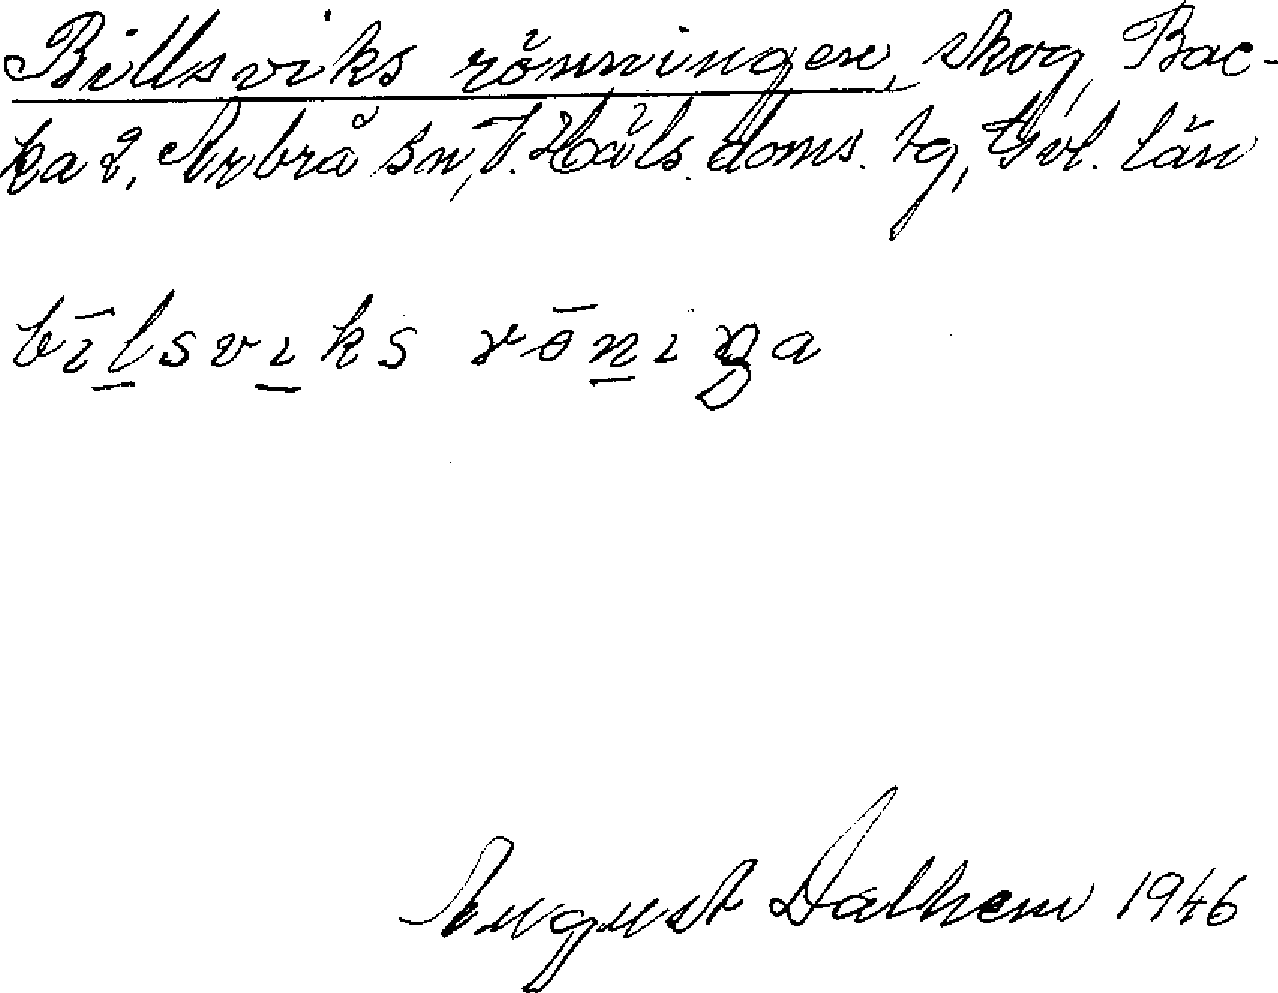 Billsviks rönningen, skog, Bac-
ka 2, Arbrå sn, V. Häls. doms. tg, Gvl. län
bīlsviks rōniŋa
August Dalhem 1946